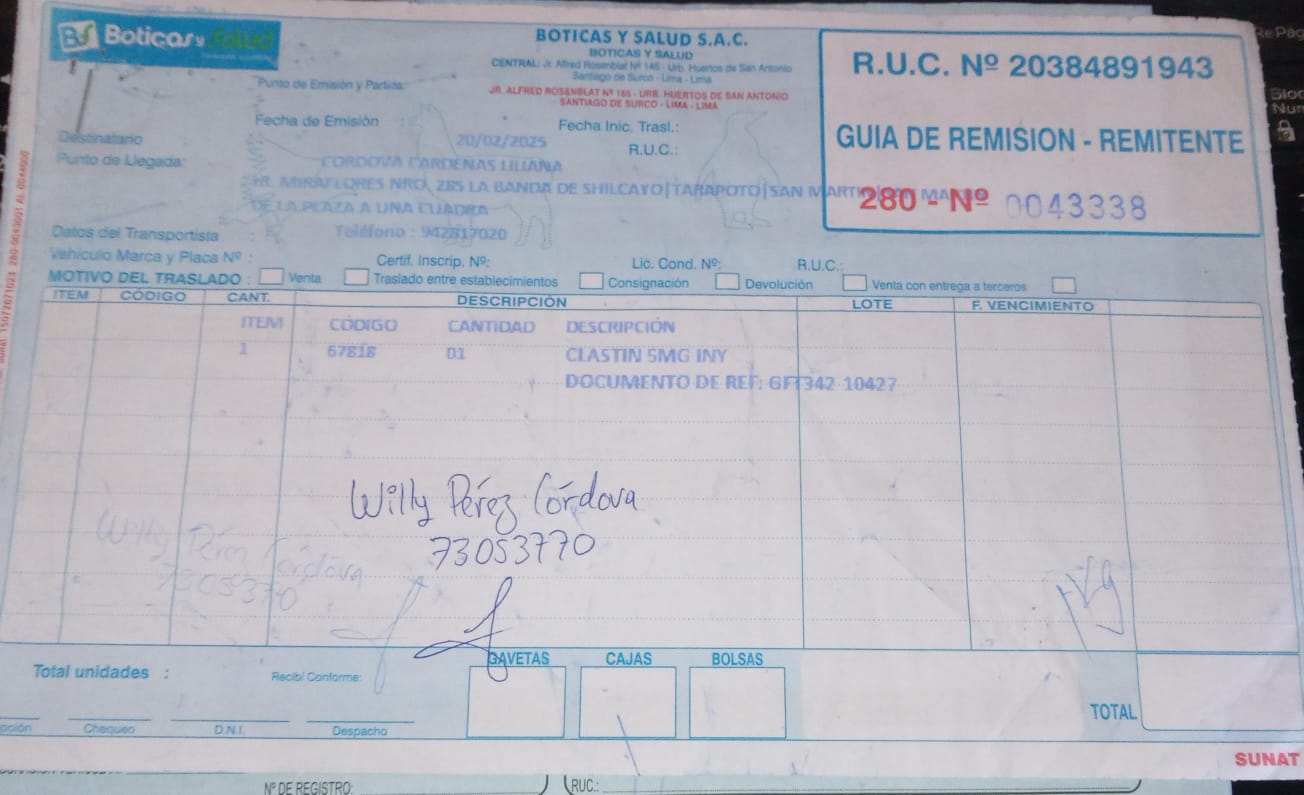 BS Boticas y Salud
BOTICAS Y SALUD S.A.C.
BOTICAS Y SALUD
CENTRAL: Jr. Alfred Rosenblat Nº 145 - Urb. Huertos de San Antonio
Santiago de Surco - Lima - Lima
Punto de Emisión y Partida:
JR. ALFRED ROSENBLAT Nº 165 - URB. HUERTOS DE SAN ANTONIO
SANTIAGO DE SURCO - LIMA - LIMA
R.U.C. Nº 20384891943
GUIA DE REMISION - REMITENTE
280 - Nº 0043338
Fecha de Emisión : 20/02/2025 Fecha Inic. Trasl.:
Destinatario : CORDOVA CARDENAS LILIANA R.U.C.:
Punto de Llegada: JR. MIRAFLORES NRO. 285 LA BANDA DE SHILCAYO|TARAPOTO|SAN MARTIN
DE LA PLAZA A UNA CUADRA
Datos del Transportista : Teléfono : 942817020
Vehículo Marca y Placa Nº : Certif. Inscrip. Nº: Lic. Cond. Nº: R.U.C.:
MOTIVO DEL TRASLADO : Venta Traslado entre establecimientos Consignación Devolución Venta con entrega a terceros
ITEM CÓDIGO CANT. DESCRIPCIÓN LOTE F. VENCIMIENTO
ITEM CÓDIGO CANTIDAD DESCRIPCIÓN
1 67818 01 CLASTIN 5MG INY
DOCUMENTO DE REF: GFT342 10427
Willy Pérez Córdova
73053770
Willy Pérez Córdova
73053770
Total unidades : Recibí Conforme: GAVETAS CAJAS BOLSAS
TOTAL
Chequeo D.N.I. Despacho
SUNAT
Nº DE REGISTRO: RUC.: